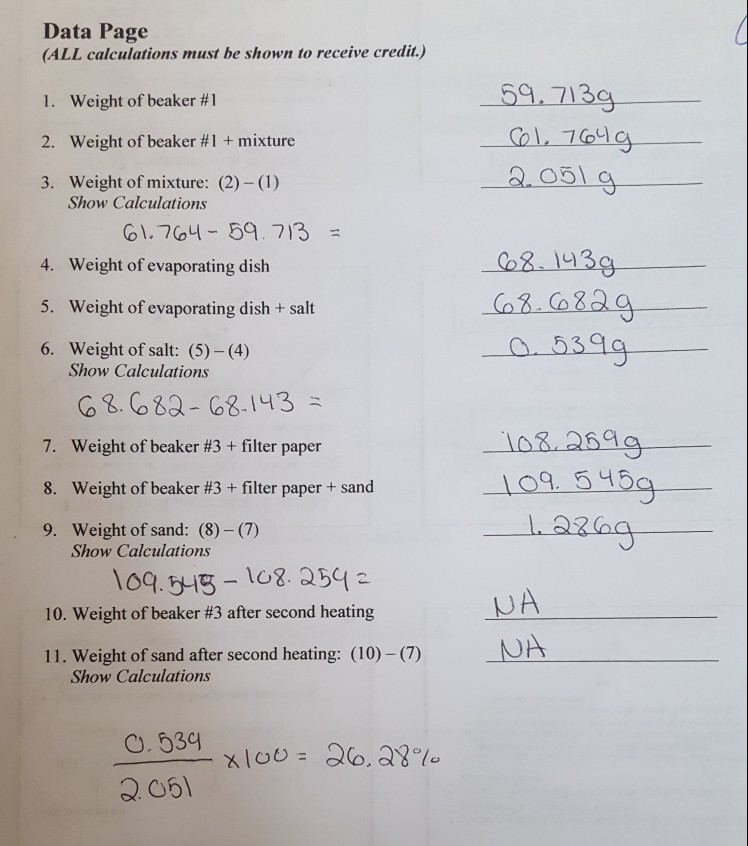 Data Page
(ALL calculations must be shown to receive credit.)
1. Weight of beaker #1 59.713g
2. Weight of beaker #1 + mixture 61.764g
3. Weight of mixture: (2) – (1) 2.051 g
Show Calculations
61.764 - 59.713 =
4. Weight of evaporating dish 68.143g
5. Weight of evaporating dish + salt 68.682g
6. Weight of salt: (5) – (4) 0.539g
Show Calculations
68.682 - 68.143 =
7. Weight of beaker #3 + filter paper 108.259g
8. Weight of beaker #3 + filter paper + sand 109.545g
9. Weight of sand: (8) – (7) 1.286g
Show Calculations
109.545 - 108.259 =
10. Weight of beaker #3 after second heating NA
11. Weight of sand after second heating: (10) – (7) NA
Show Calculations
0.539
x100 = 26.28%
2.051